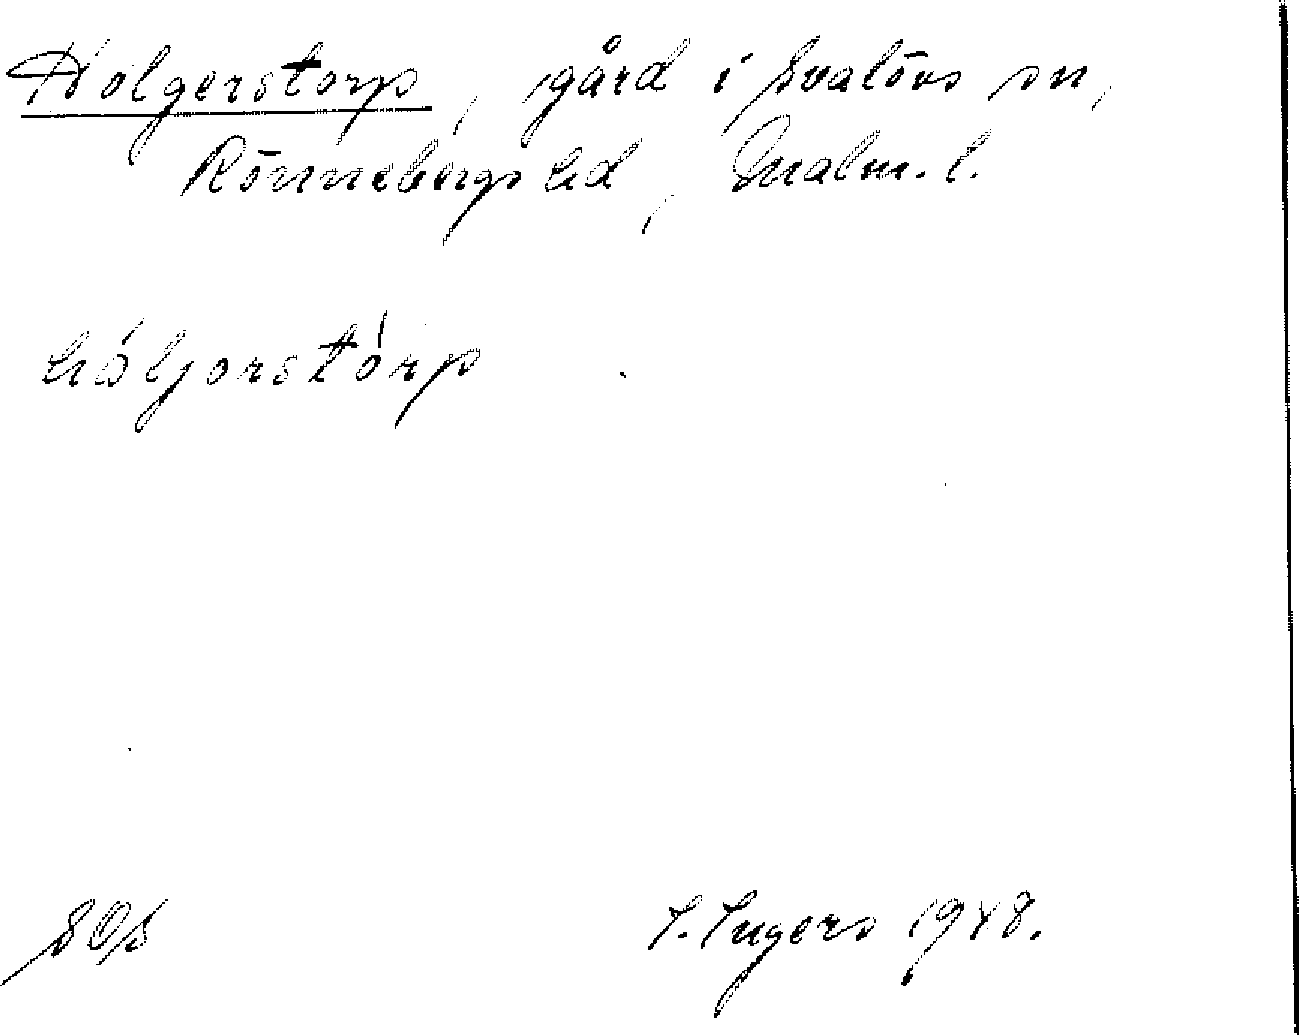 Holgerstorp, gård i Svalövs sn,
Rönnebergs hd, Malm. l.
hóljorstórp
SOS I. Ingers 1948.